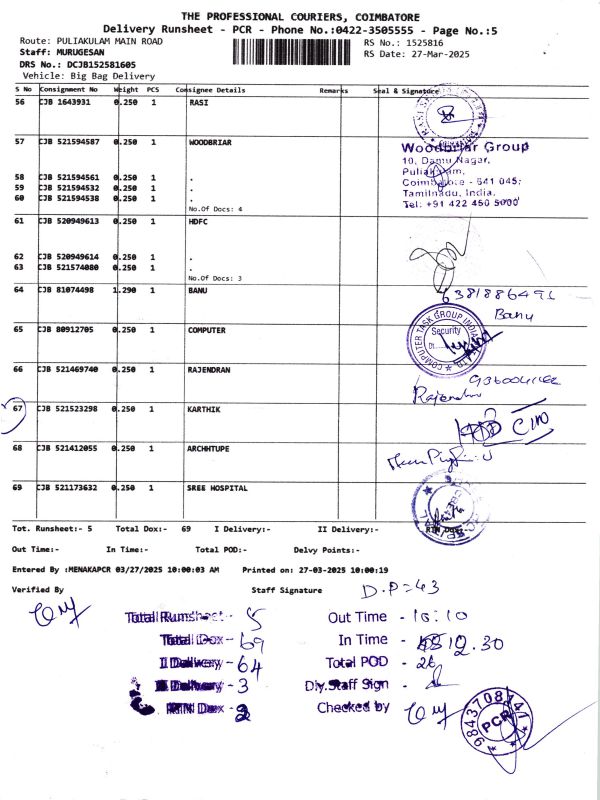 THE PROFESSIONAL COURIERS, COIMBATORE
Delivery Runsheet - PCR - Phone No.:0422-3505555 - Page No.:5
Route: PULIAKULAM MAIN ROAD RS No.: 1525816
Staff: MURUGESAN RS Date: 27-Mar-2025
DRS No.: DCJB152581605
Vehicle: Big Bag Delivery
S No Consignment No Weight PCS Consignee Details Remarks Seal & Signature
56 CJB 1643931 0.250 1 RASI
57 CJB 521594587 0.250 1 WOODBRIAR
Woodbriar Group
10, Damu Nagar,
Puliakulam,
Coimbatore - 641 045,
Tamilnadu, India.
Tel: +91 422 450 5000
58 CJB 521594561 0.250 1 .
59 CJB 521594532 0.250 1 .
60 CJB 521594538 0.250 1 .
No.Of Docs: 4
61 CJB 520949613 0.250 1 HDFC
62 CJB 520949614 0.250 1 .
63 CJB 521574080 0.250 1 .
No.Of Docs: 3
64 CJB 81074498 1.290 1 BANU
Banu
65 CJB 80912705 0.250 1 COMPUTER
COMPUTER TASK GROUP INDIA
Security
66 CJB 521469740 0.250 1 RAJENDRAN
67 CJB 521523298 0.250 1 KARTHIK
68 CJB 521412055 0.250 1 ARCHHTUPE
69 CJB 521173632 0.250 1 SREE HOSPITAL
Tot. Runsheet:- 5 Total Dox:- 69 I Delivery:- II Delivery:- RTN Dox:-
Out Time:- In Time:- Total POD:- Delvy Points:-
Entered By :MENAKAPCR 03/27/2025 10:00:03 AM Printed on: 27-03-2025 10:00:19
Verified By Staff Signature D.P=43
Total Rumsheet - 5 Out Time - 10:10
Total Dox - 69 In Time - 12.30
I Delivery - 64 Total POD - 26
II Delivery - 3 Diy.Staff Sign -
RTN Dox - 2 Checked by
PCR